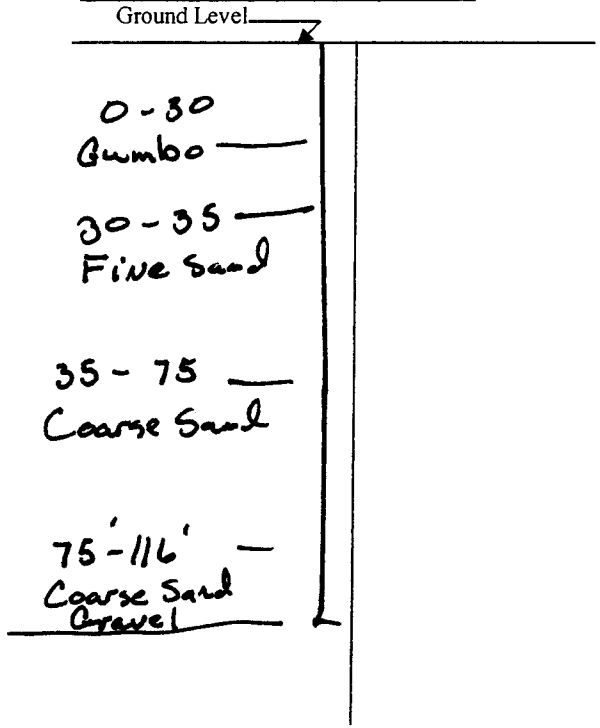 Ground Level
0 - 30
Gumbo
30 - 35
Fine Sand
35 - 75
Coarse Sand
75' - 116'
Coarse Sand
Gravel